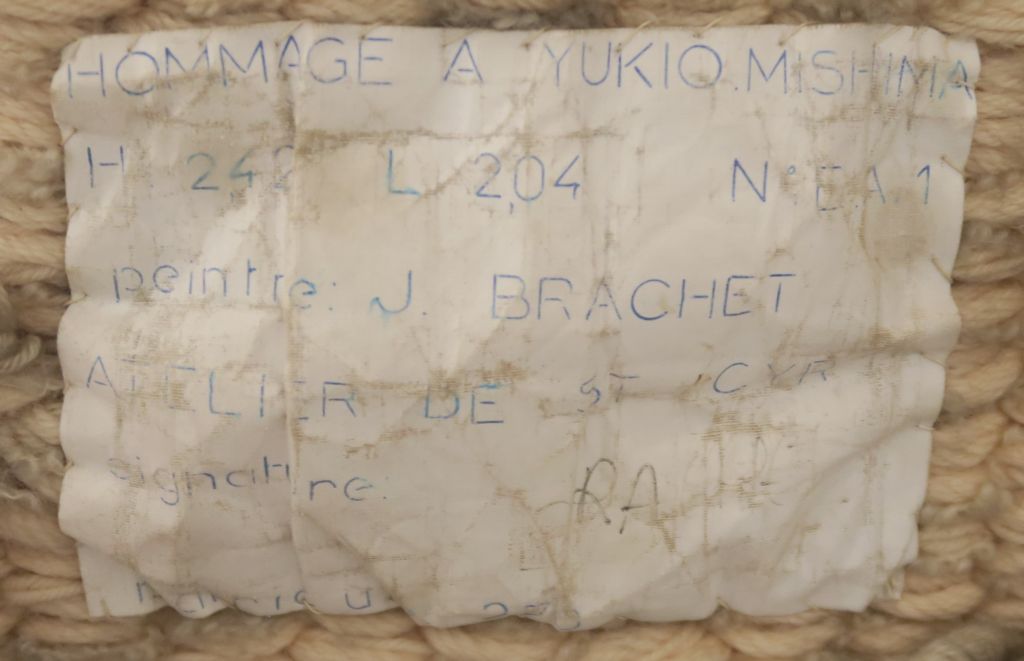 HOMMAGE A YUKIO.MISHIMA
H. 2,42 L 2,04 N° E.A.1
peintre: J. BRACHET
ATELIER DE ST CYR
signature: